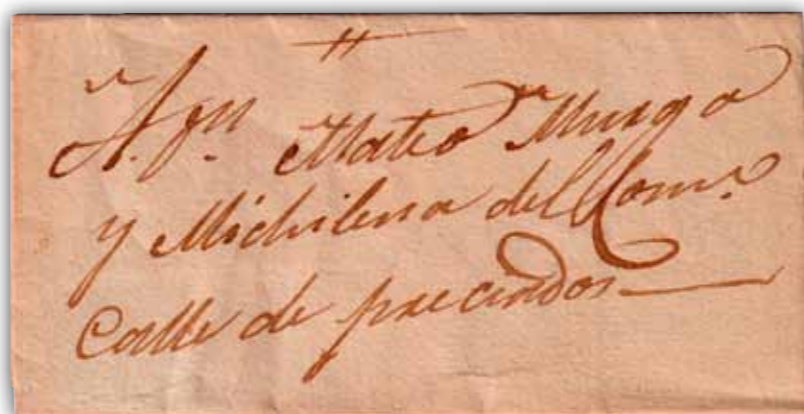 A. Dn. Mateo Murga
y Michilena del Come.
Calle de preciados